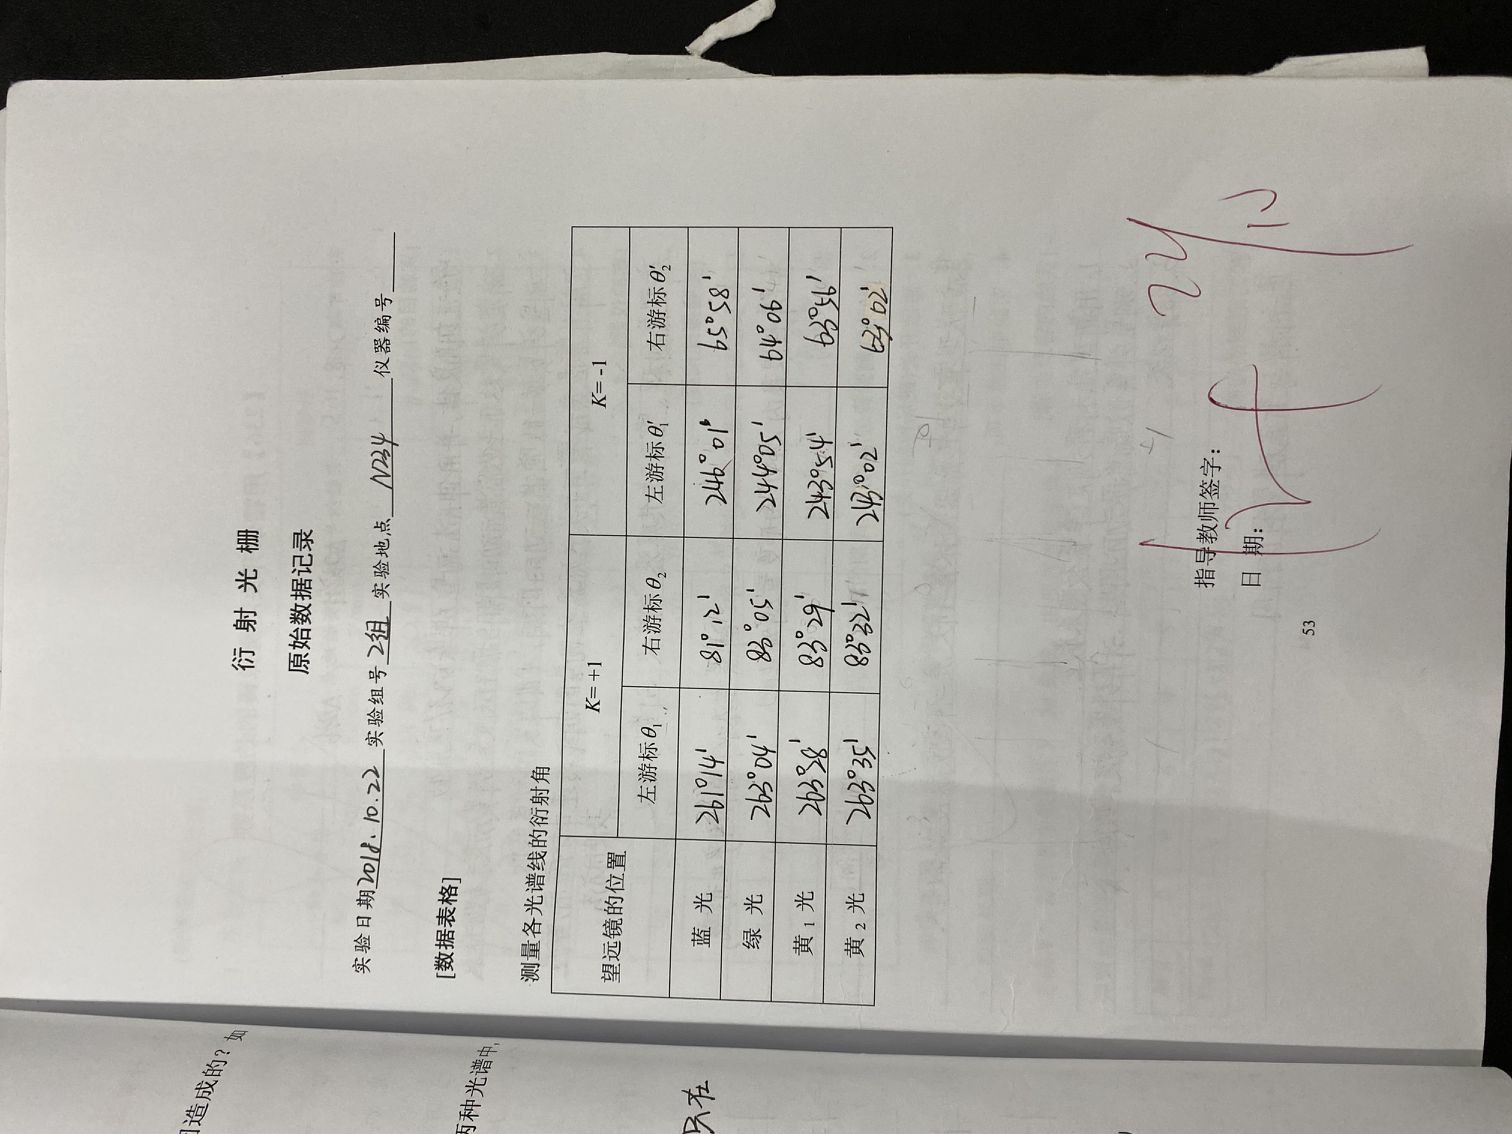 因造成的？如
两种光谱中，
只在
衍射光栅
原始数据记录
实验日期2018.10.22 实验组号2组 实验地点N234 仪器编号
[数据表格]
测量各光谱线的衍射角
望远镜的位置 K= +1 K= -1
左游标θ₁ 右游标θ₂ 左游标θ₁′ 右游标θ₂′
蓝光 261°14′ 81°12′ 246°01′ 65°58′
绿光 263°04′ 83°05′ 244°05′ 64°06′
黄₁光 263°28′ 83°29′ 243°54′ 63°56′
黄₂光 263°35′ 83°32′ 243°02′ 63°02′
指导教师签字：
日 期：
22/10
53